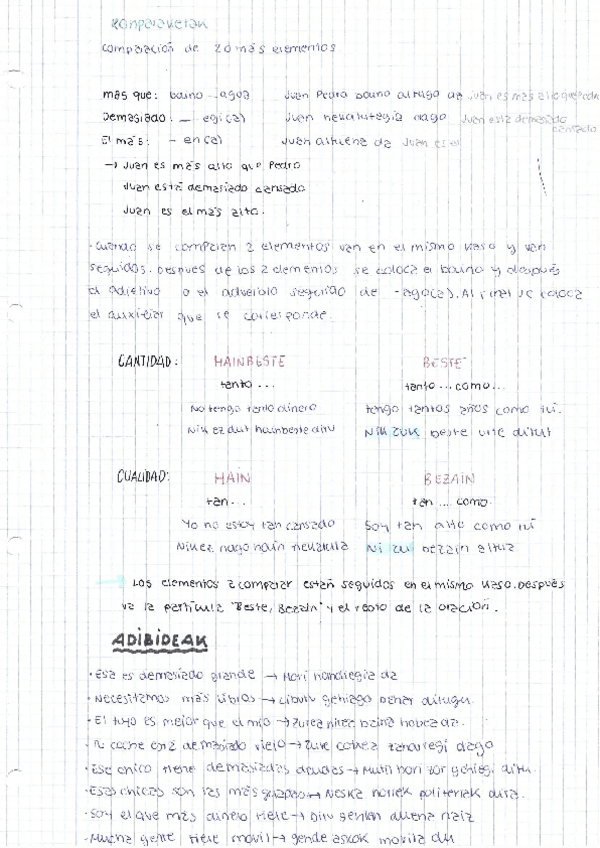 Konparaketak
Comparación de 2 o más elementos
más que: baino -ago(a) Juan Pedro baino altuago da Juan es más alto que Pedro
Demasiado: - egi(a) Juan nekatuegia dago Juan está demasiado cansado
El más: - en(a) Juan altuena da Juan es el
→ Juan es más alto que Pedro
Juan está demasiado cansado
Juan es el más alto.
·Cuando se comparan 2 elementos van en el mismo kaso y van
seguidos. Después de los 2 elementos se coloca el baino y después
el adjetivo o el adverbio seguido de -ago(a). Al final se coloca
el auxiliar que se corresponde.
CANTIDAD: HAINBESTE BESTE
tanto... tanto...como...
No tengo tanto dinero tengo tantos años como tú.
Nik ez dut hainbeste diru Nik zuk beste urte ditut
CUALIDAD: HAIN BEZAIN
tan... tan....como.
Yo no estoy tan cansado Soy tan alto como tú
Nik ez nago hain nekatuta Ni zu bezain altua
→ Los elementos a comparar están seguidos en el mismo kaso. Después
va la partícula "Beste, Bezain" y el resto de la oración.
ADIBIDEAK
·Esa es demasiado grande → Hori handiegia da
·Necesitamos más libros → liburu gehiago behar ditugu.
·El tuyo es mejor que el mío → Zurea nirea baino hobea da.
·Tu coche está demasiado viejo → Zure kotxea zaharegi dago
·Ese chico tiene demasiadas deudas → Mutil hori zor gehiegi ditu.
·Esas chicas son las más guapas → Neska horiek politenak dira.
·Soy el que más dinero tiene → Diru gehien duena naiz
·Mucha gente tiene movil → gende askok mobila du